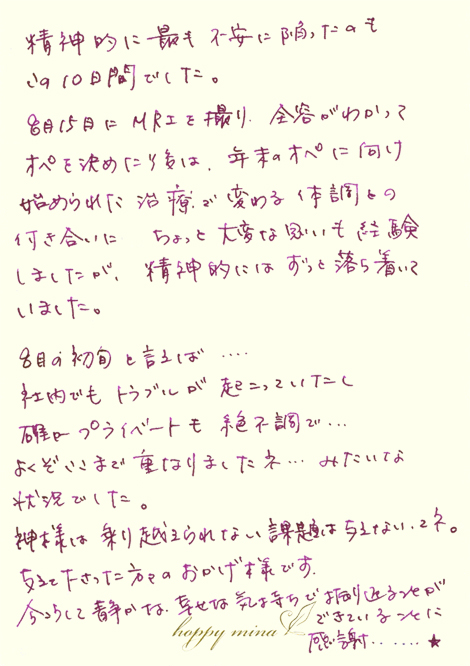 精神的に最も不安に陥ったのも
この10日間でした。
8月15日にMRIを撮り、全容がわかって
オペを決めた後は、年末のオペに向け
始められた治療で変わる体調との
付き合いに ちょっと大変な思いも経験
しましたが、精神的にはずっと落ち着いて
いました。
8月の初旬と言えば‥‥
社内でもトラブルが起こっていたし
確かプライベートも絶不調で…
よくぞここまで重なりましたネ…みたいな
状況でした。
神様は乗り越えられない課題は与えない、とネ。
支えて下さった方々のおかげ様です。
今こうして静かな、幸せな気持ちでお振り返ることが
できていることに
感謝‥‥‥★
happy mina